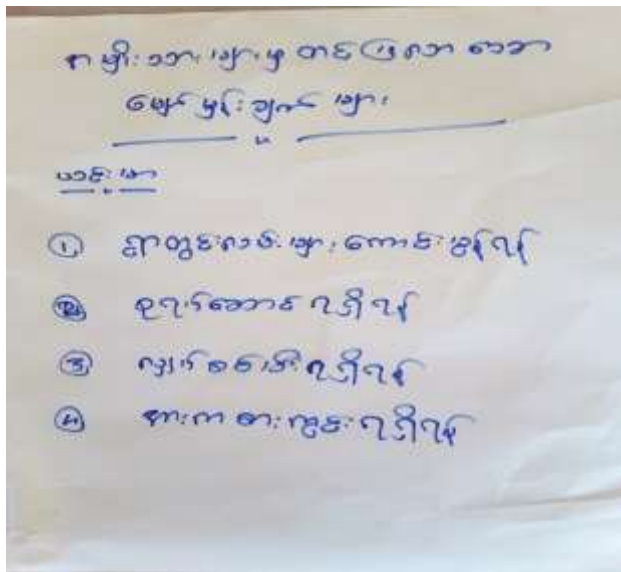 အမျိုးသားများမှ တင်ပြသော
မျှော်မှန်းချက် များ
သင်းမာ
① ရွာတွင်းလမ်းများ ကောင်းမွန်ရန်
② ရရှိရန်
③ လျှပ်စစ်မီးရရှိရန်
④ အားကစားကွင်းရရှိရန်